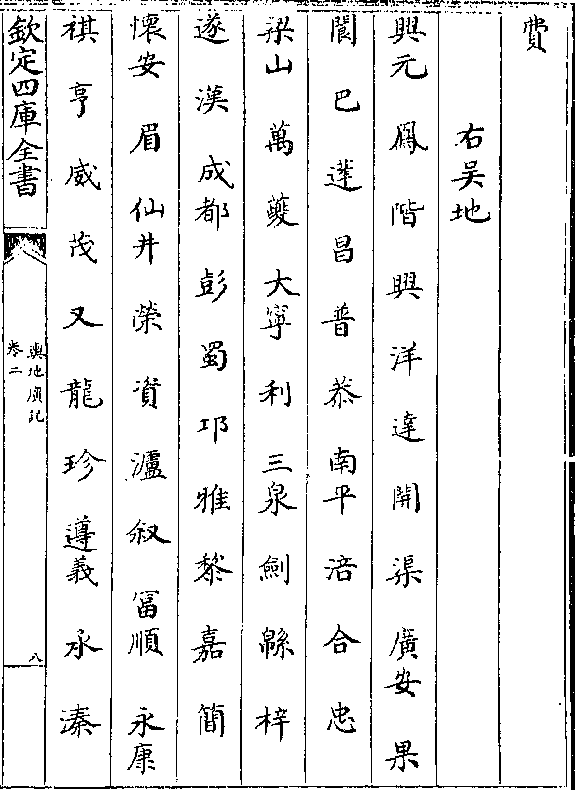 費
右吳地
興元 鳳 階 興 洋 達 開 渠 廣安 果
閬 巴 蓬 昌 普 恭 南平 涪 合 忠
梁山 萬 夔 大寧 利 三泉 劍 緜 梓
遂 漢 成都 彭 蜀 邛 雅 黎 嘉 簡
懷安 眉 仙井 榮 資 瀘 叙 富順 永康
祺 亨 威 茂 又 龍 珍 遵義 承 溱
欽定四庫全書
輿地廣記
卷二
八